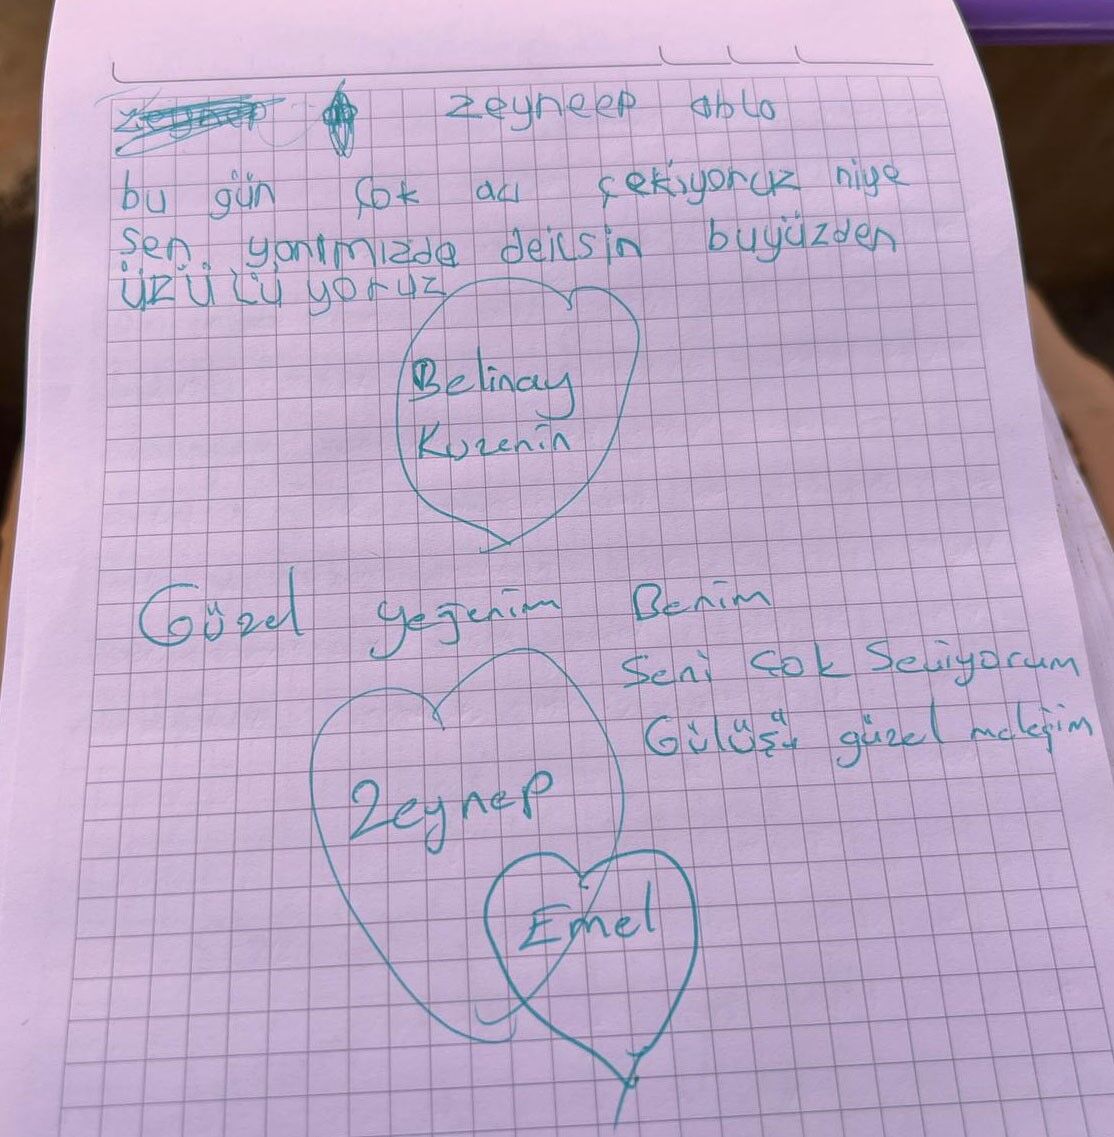 zeyneep abla
bu gün çok acı çekiyoruz niye
sen yanımızda deilsin buyüzden
üzülüyoruz
Belinay
Kuzenin
Güzel yeğenim Benim
Seni Çok Seviyorum
Gülüşü güzel meleğim
Zeynep
Emel